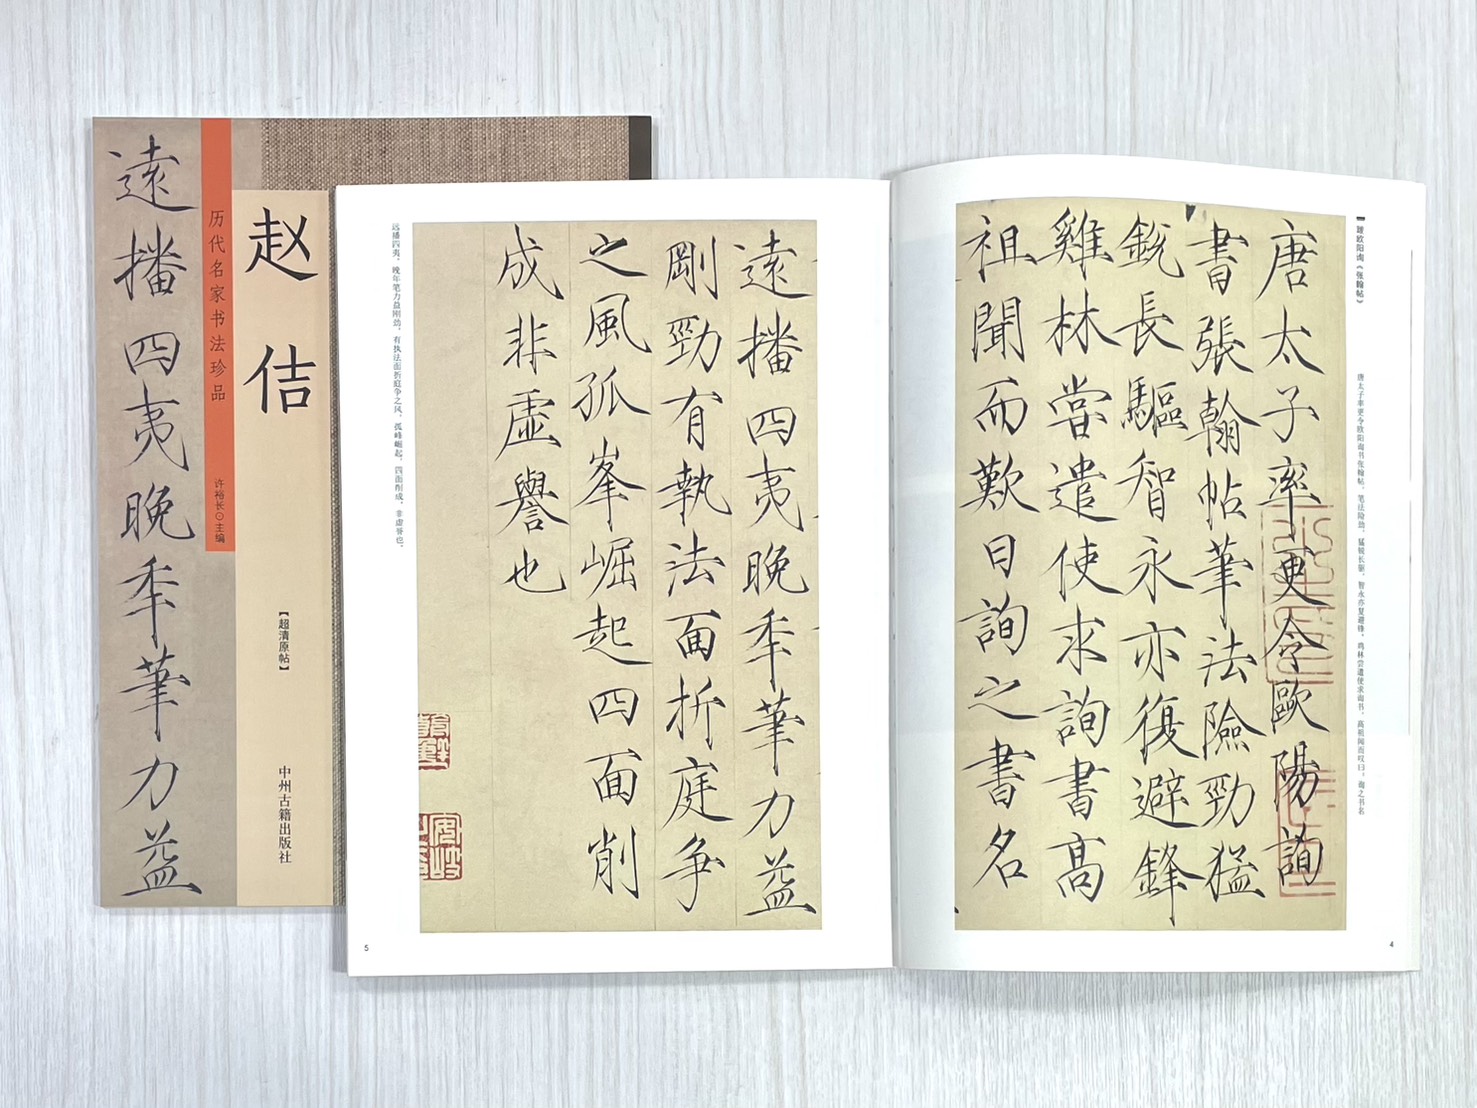 遠播四夷晚秊筆力益
历代名家书法珍品
许裕长⊙主编
赵佶
【超清原帖】
中州古籍出版社
跋欧阳询《张翰帖》
唐太子率更令欧阳询书张翰帖，笔法险劲，猛锐长驱，智永亦复避锋，鸡林尝遣使求询书，高祖闻而叹曰，询之书名
唐太子率更令歐陽詢
書張翰帖筆法險勁猛
銳長驅智永亦復避鋒
雞林嘗遣使求詢書高
祖聞而歎曰詢之書名
4
遠播四夷晚秊筆力益
剛勁有執法面折庭争
之風孤峯崛起四面削
成非虛譽也
远播四夷，晚年笔力益刚劲，有执法面折庭争之风，孤峰崛起，四面削成，非虚誉也。
5